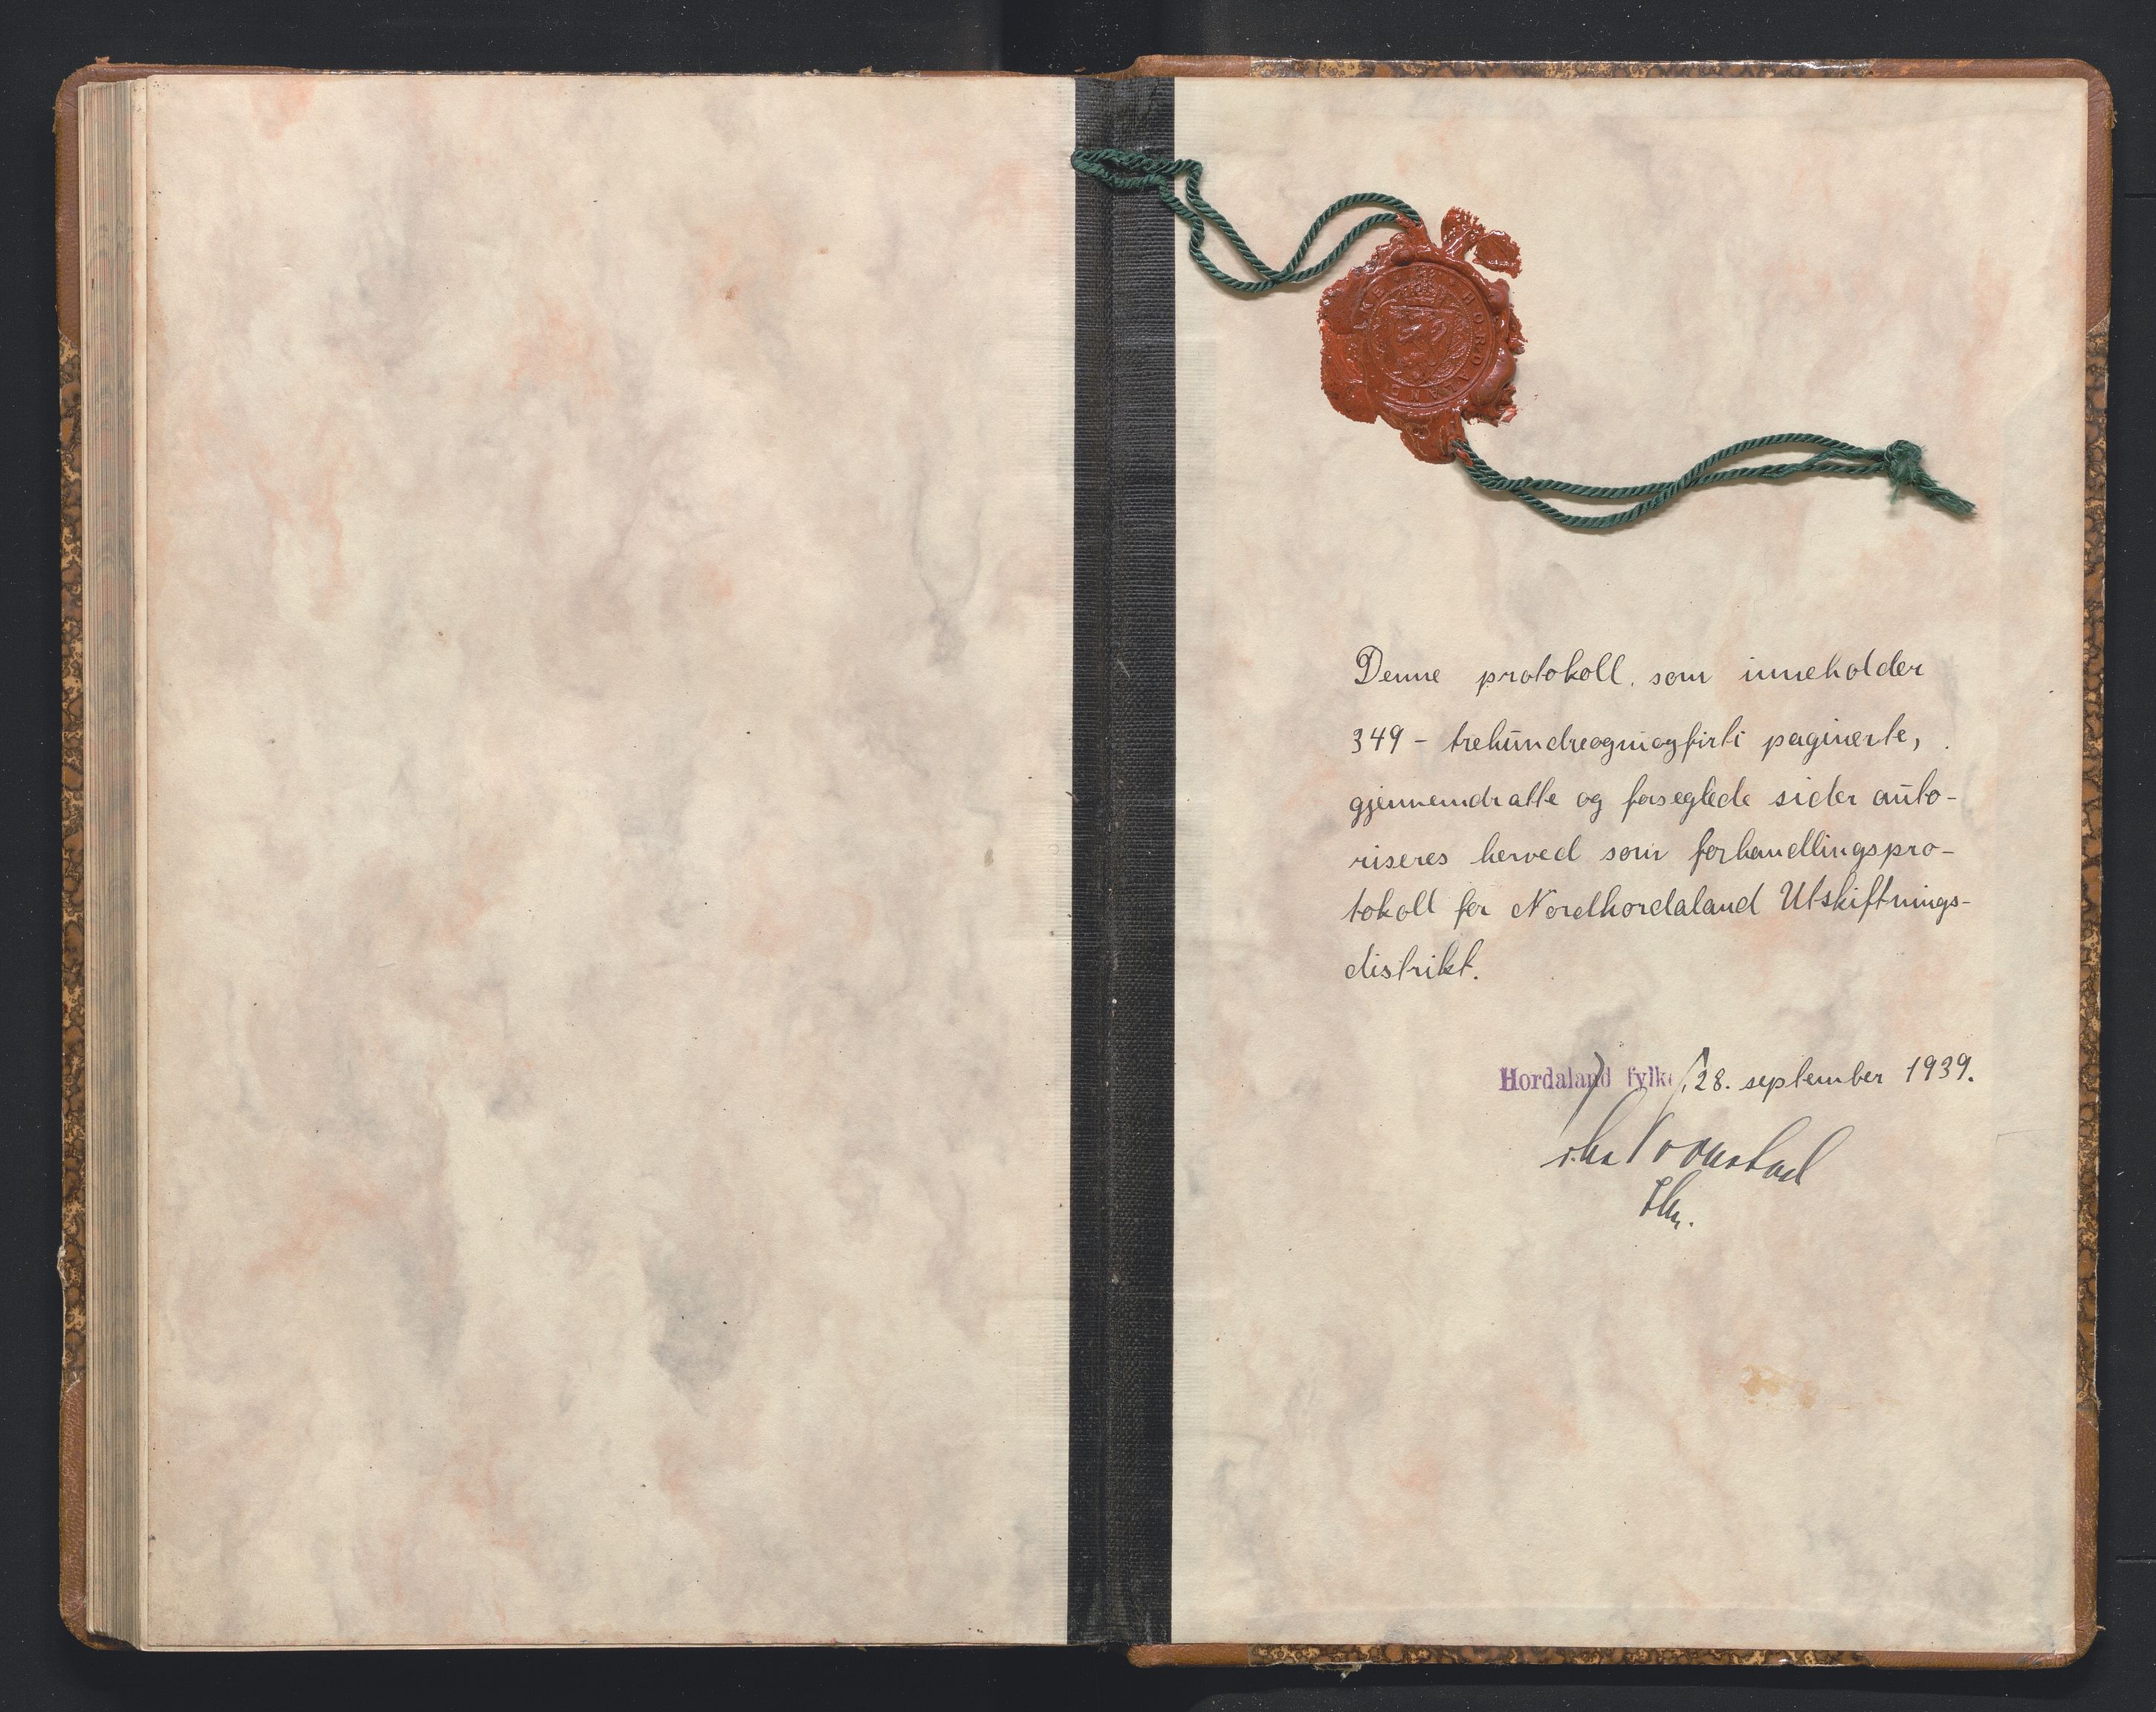 HORDALAND FYLKE
Denne protokoll som inneholder
349 - trehundreogniogfirti paginerte,
gjennemdratte og forseglede sider auto-
riseres herved som forhandlingspro-
tokoll for Nordhordaland Utskiftnings-
distrikt.
Hordaland fylke, 28. september 1939.